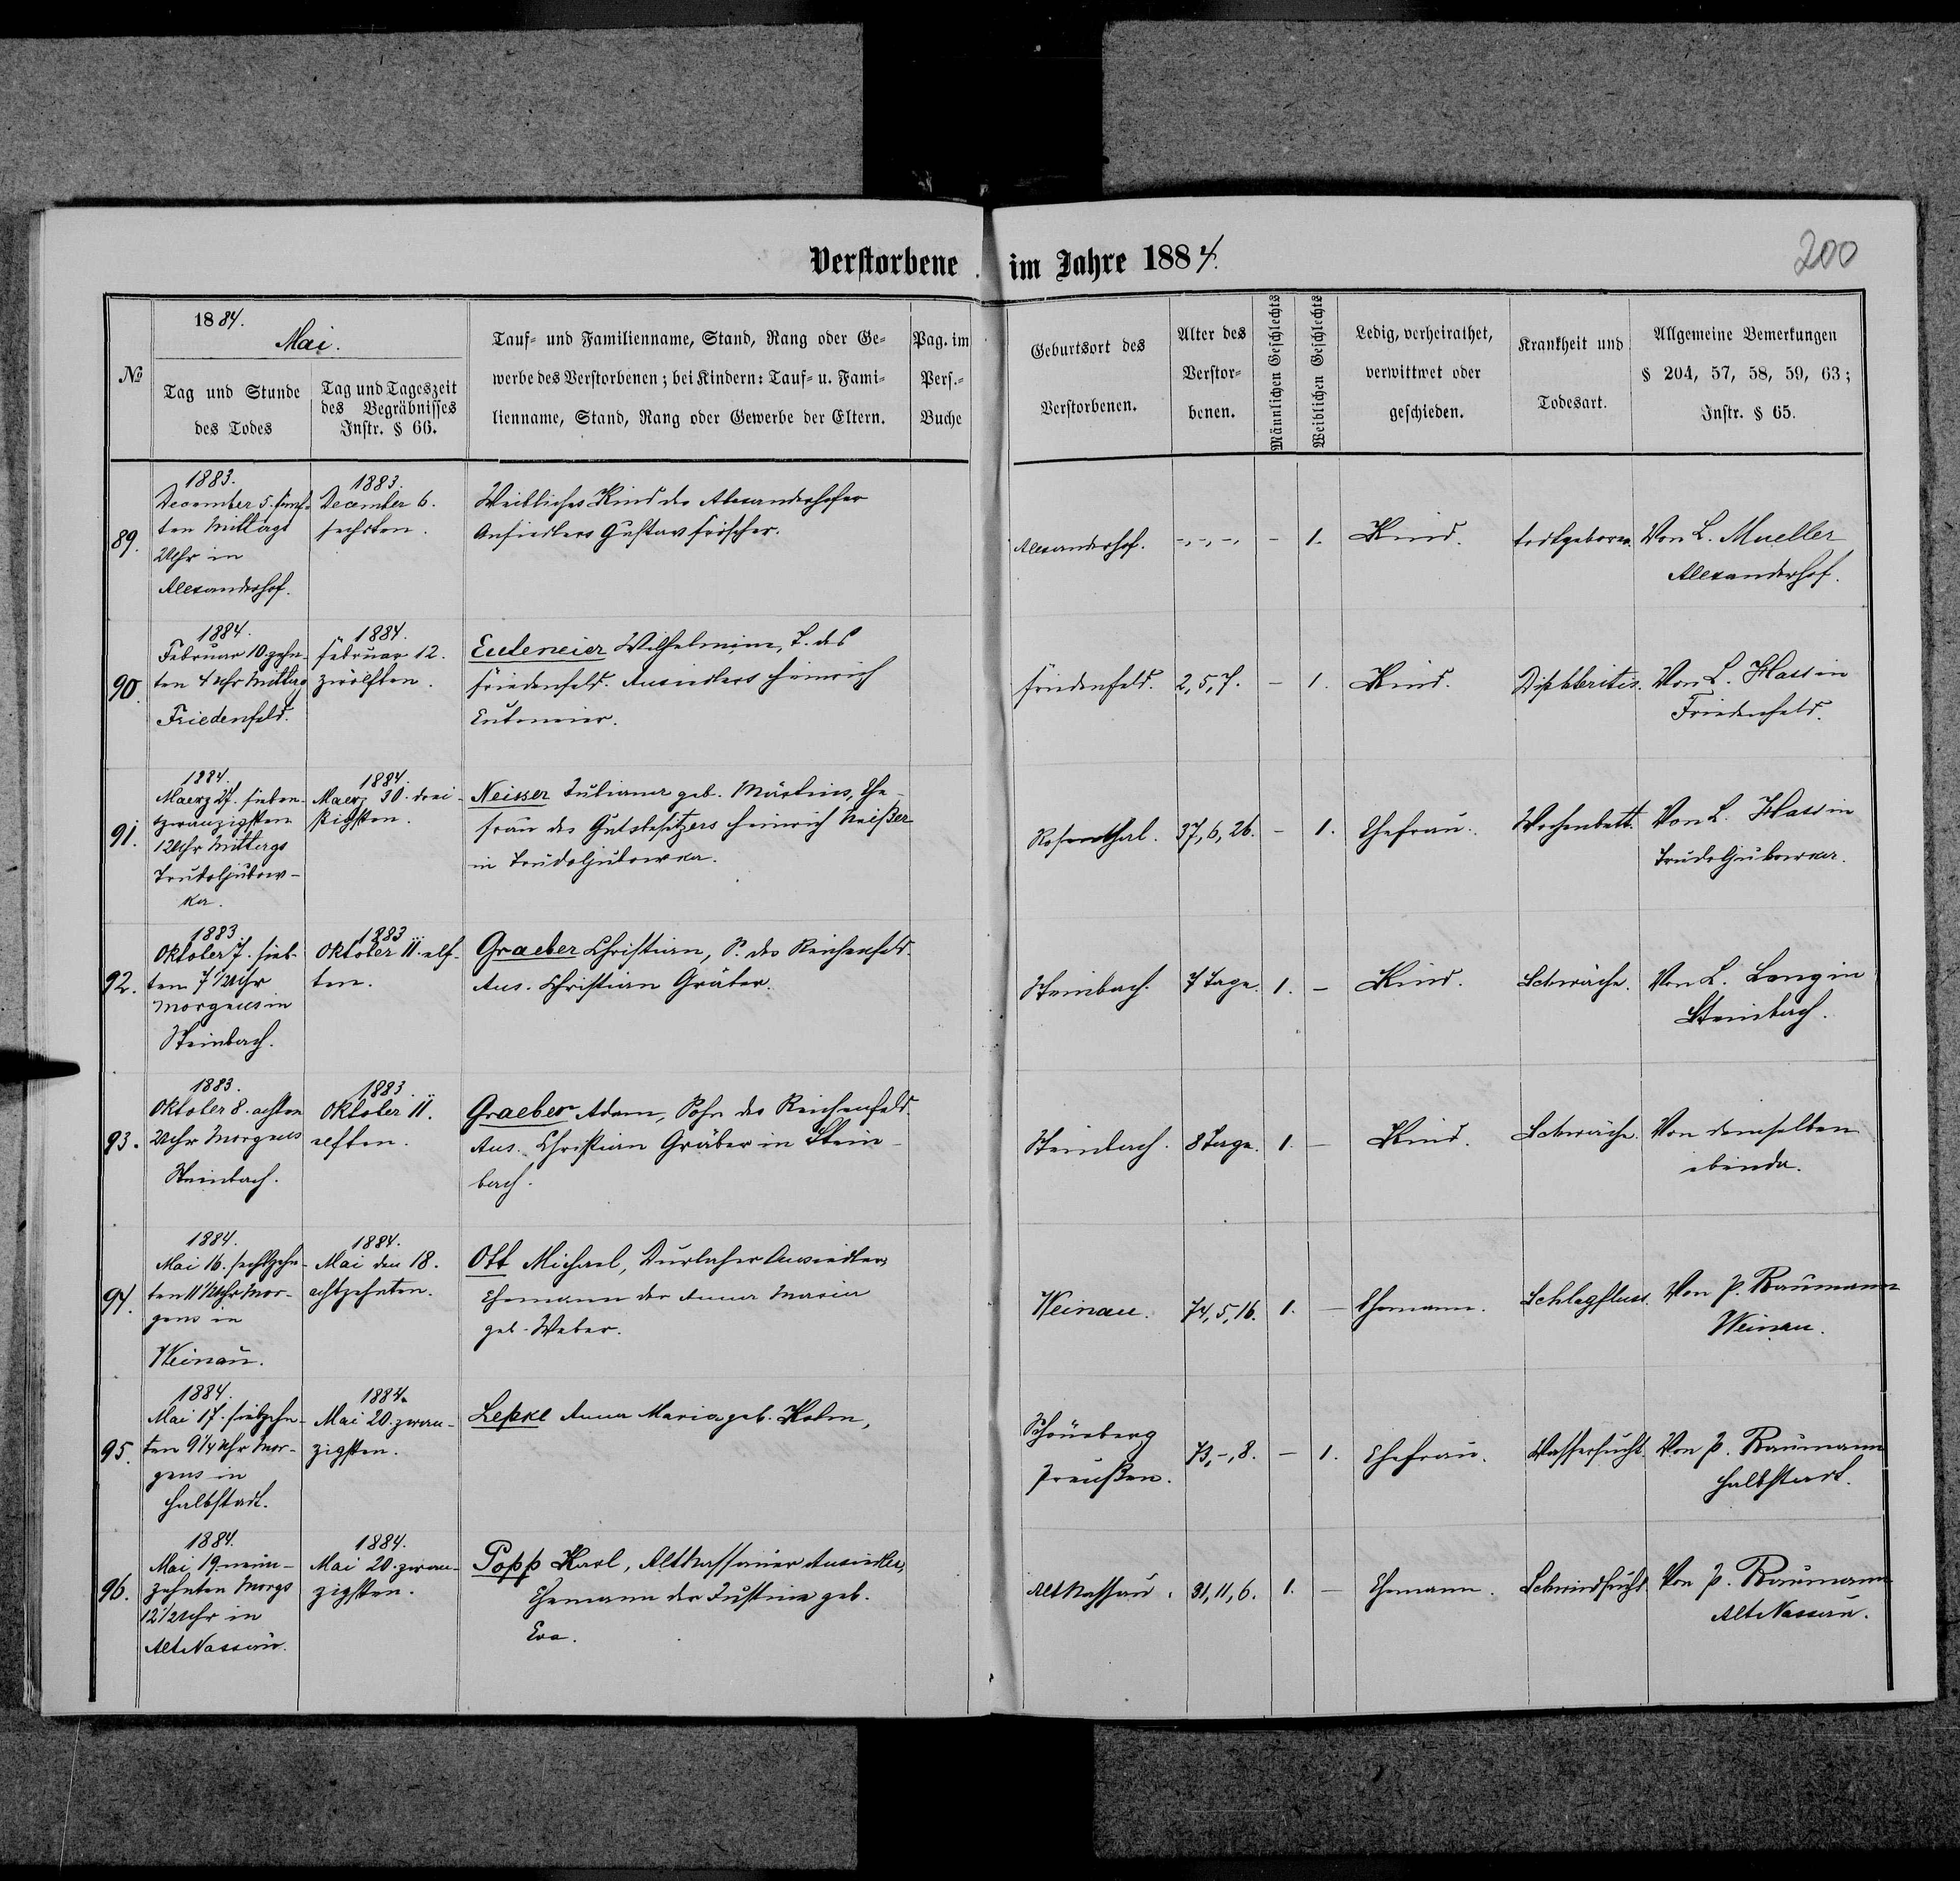 Verstorbene im Jahre 1884.
200
№
1884.
Mai.
Tag und Stunde
des Todes
Tag und Tageszeit
des Begräbnisses
Instr. § 66.
Tauf- und Familienname, Stand, Rang oder Ge-
werbe des Verstorbenen; bei Kindern: Tauf- u. Fami-
lienname, Stand, Rang oder Gewerbe der Eltern.
Pag. im
Pers.-
Buche
Geburtsort des
Verstorbenen.
Alter des
Verstor-
benen.
Männlichen Geschlechts
Weiblichen Geschlechts
Ledig, verheirathet,
verwittwet oder
geschieden.
Krankheit und
Todesart.
Allgemeine Bemerkungen
§ 204, 57, 58, 59, 63;
Instr. § 65.
89.
1883.
December 5. fünf-
ten Mittags
Uhr in
Alexanderhof.
1883.
December 6.
sechsten.
Weibliches Kind des Alexanderhofer
Ansiedlers Gustav Fröscher.
Alexanderhof.
-,-,-,
-
1.
Kind.
todtgeboren.
Von L. Mueller
Alexanderhof.
90.
1884.
Februar 10. zehn-
ten 4 Uhr Mittags
Friedenfeld.
1884.
Februar 12.
zwölften.
Euteneier Wilhelmine, T. des
Friedenfeld. Ansiedlers Heinrich
Euteneier.
Friedenfeld.
2, 5, 7.
-
1.
Kind.
Diphteritis.
Von L. Hass in
Friedenfeld.
91.
1884.
Maerz 27. sieben-
zwanzigsten
12 Uhr Mittags
Trudoljubow-
ka.
1884.
Maerz 30. drei-
ßigsten.
Neisser Juliana geb. Martins, Ehe-
frau des Gutsbesitzers Heinrich Neißer
in Trudoljubowka.
Rosenthal.
37, 6, 26.
-
1.
Ehefrau.
Wochenbett.
Von L. Hass in
Trudoljubowka.
92.
1883
Oktober 7. sieb-
ten 7 1/2 Uhr
Morgens in
Steinbach.
1883
Oktober 11. elf-
ten.
Graeber Christian, S. des Reichenfeld.
Ans. Christian Gräber.
Steinbach.
7 Tage.
1.
-
Kind.
Schwäche.
Von L. Lang in
Steinbach.
93.
1883.
Oktober 8. achten
Uhr Morgens
Steinbach.
1883.
Oktober 11.
elften.
Graeber Adam, Sohn des Reichenfeld.
Ans. Christian Gräber in Stein-
bach.
Steinbach.
8 Tage.
1.
-
Kind.
Schwäche.
Von demselben
ebenda.
94.
1884.
Mai 16. sechszehn-
ten 11 1/2 Uhr Mor-
gens in
Weinau.
1884.
Mai den 18.
achtzehnten.
Ott Michael, Durlacher Ansiedler,
Ehemann der Anna Maria
geb. Weber.
Weinau.
74, 5, 16.
1.
-
Ehemann.
Schlagfluss.
Von P. Baumann
Weinau.
95.
1884.
Mai 17. siebzehn-
ten 9 1/4 Uhr Mor-
gens in
Halbstadt.
1884.
Mai 20. zwan-
zigsten.
Lepke Anna Maria geb. Kohn,
Schöneberg
Preußen.
73, -, 8.
-
1.
Ehefrau.
Wassersucht.
Von P. Baumann
Halbstadt.
96.
1884.
Mai 19. neun-
zehnten Morgs
12 1/2 Uhr in
Alt Nassau.
1884.
Mai 20. zwan-
zigsten.
Popp Karl, Alt Nassauer Ansiedler,
Ehemann der Justina geb.
Eva.
Alt Nassau.
31, 11, 6.
1.
-
Ehemann.
Schwindsucht.
Von P. Baumann
Alt Nassau.